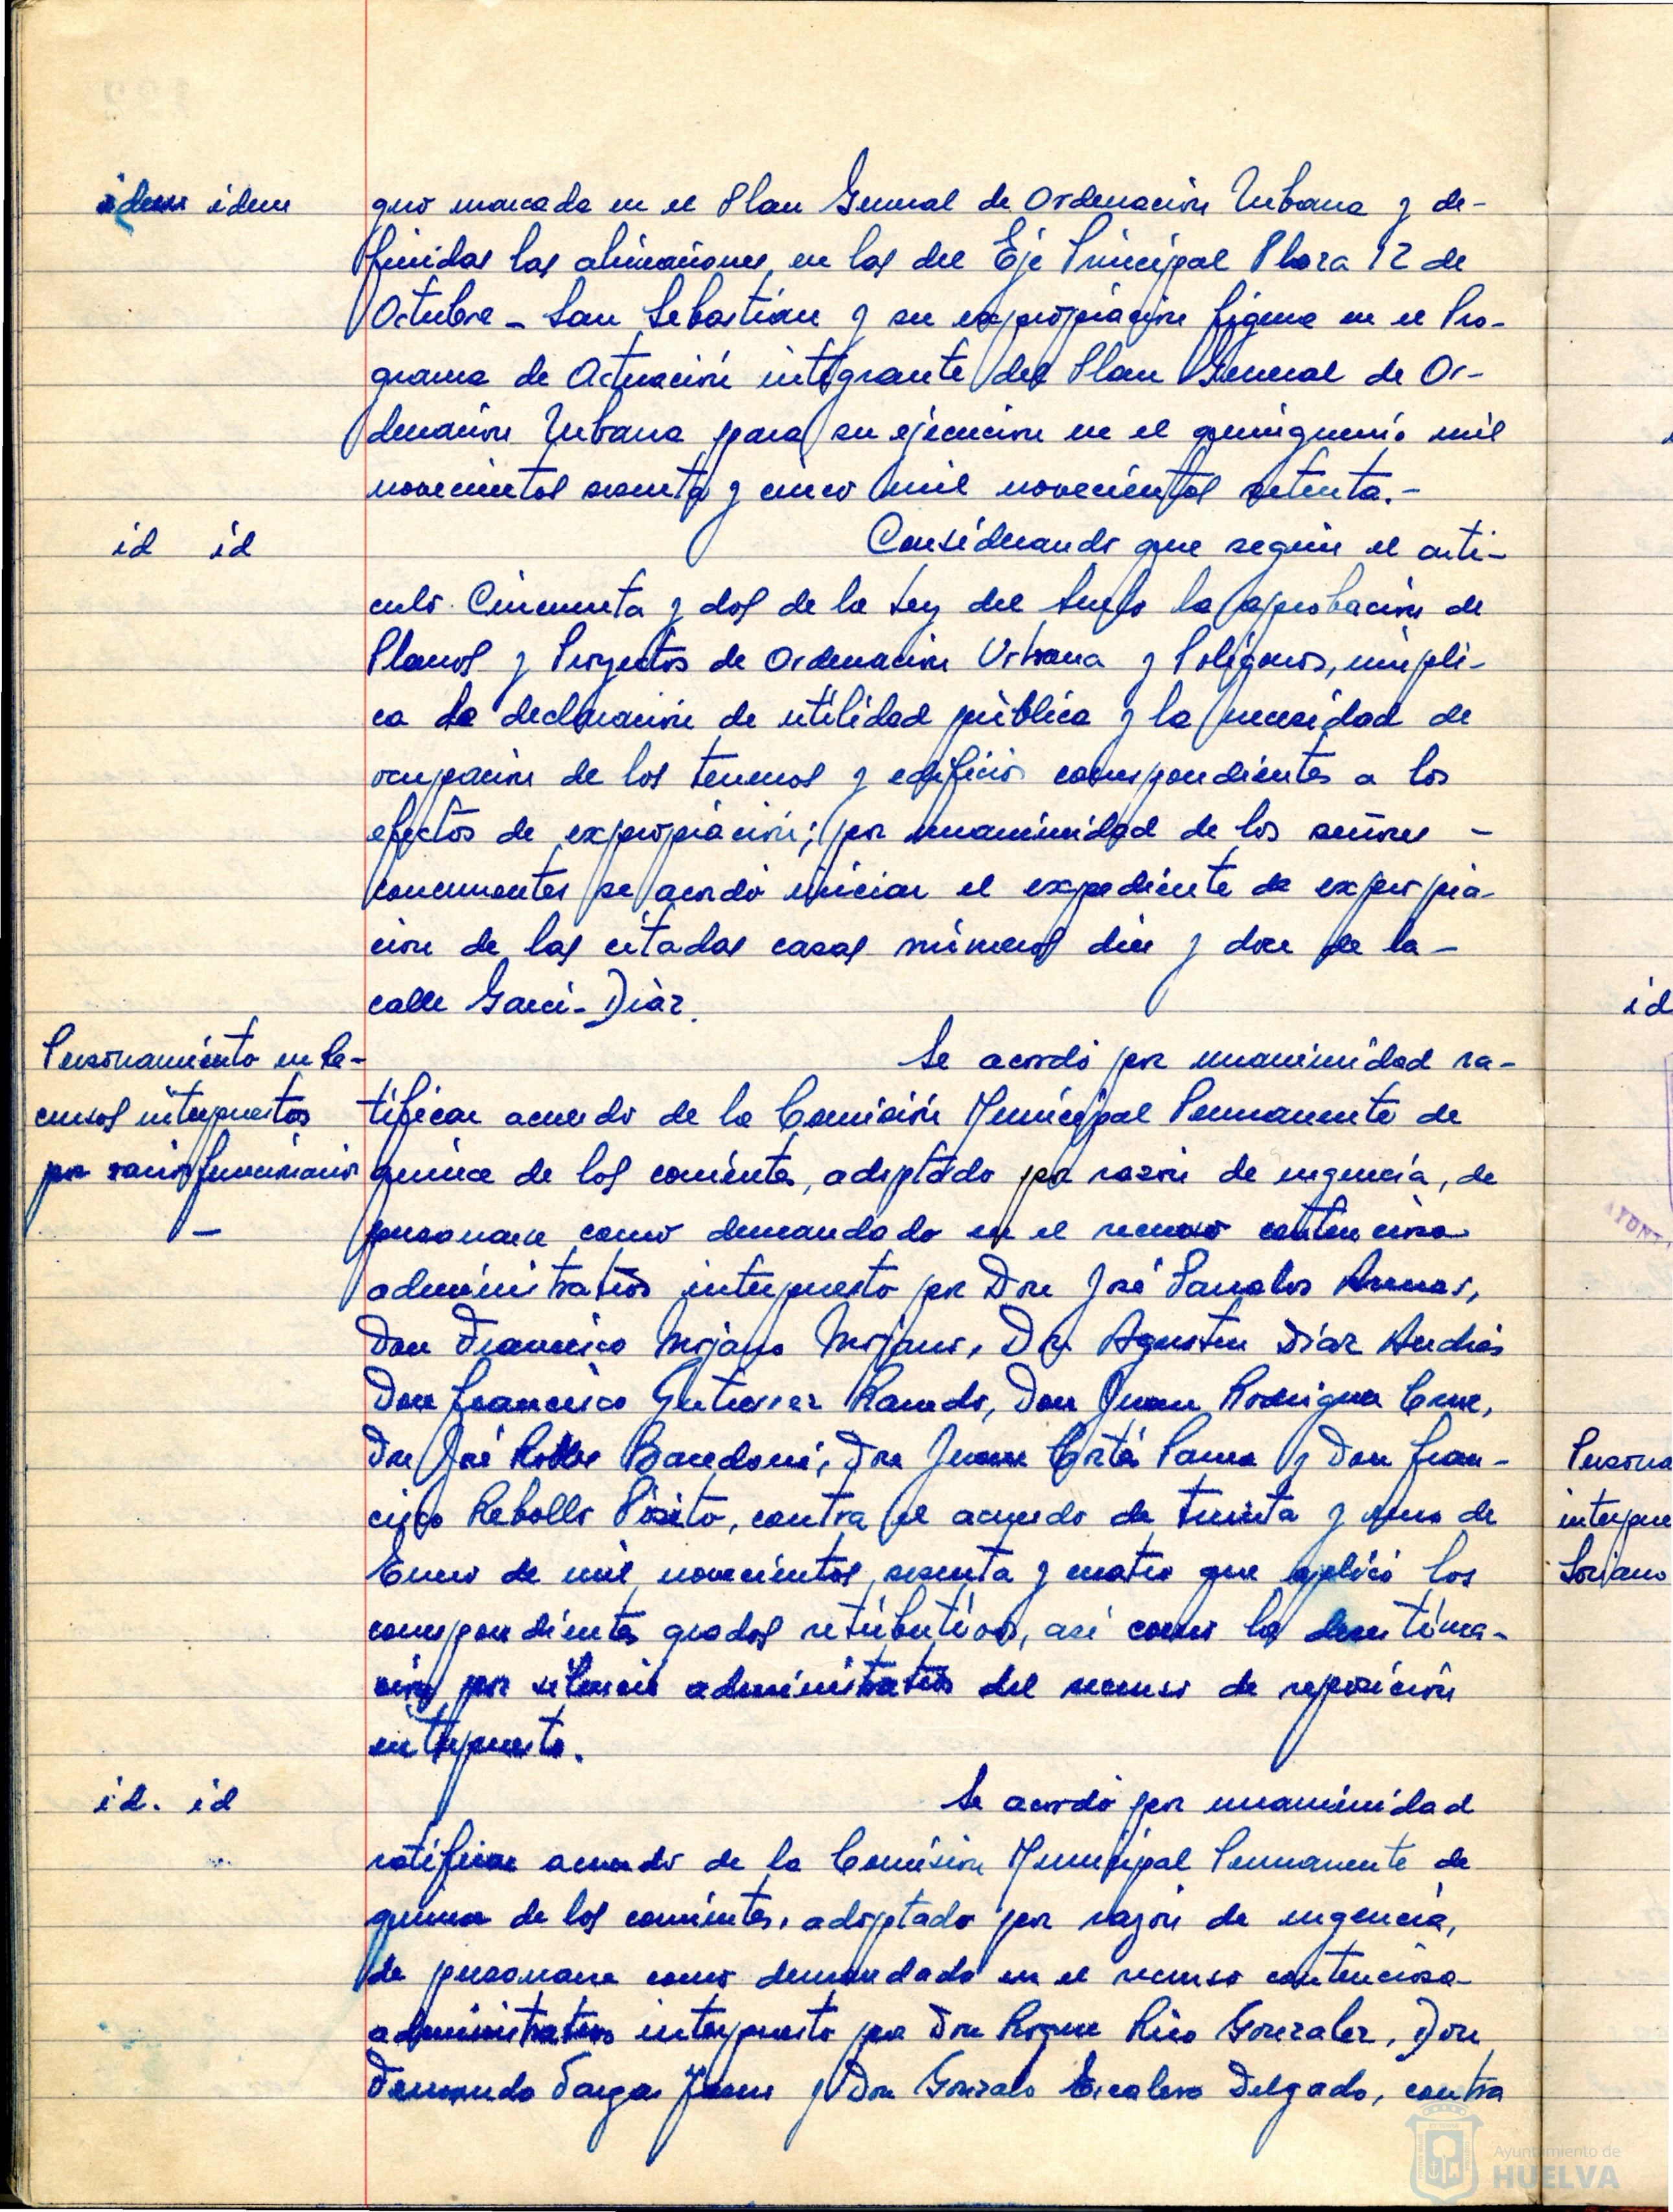 idem idem
quo marcada en el Plan General de Ordenación Urbana y de-
finidas las alineaciones en las del Eje Principal Plaza 12 de
Octubre - San Sebastián y su expropiación figura en el Pro-
grama de Actuación integrante del Plan General de Or-
denación Urbana para su ejecución en el quinquenio mil
novecientos sesenta y cinco mil novecientos setenta.-
id id
Considerando que según el artí-
culo Cincuenta y dos de la Ley del Suelo la aprobación de
Planos y Proyectos de Ordenación Urbana y Polígonos, impli-
ca la declaración de utilidad pública y la necesidad de
ocupación de los terrenos y edificios correspondientes a los
efectos de expropiación; por unanimidad de los señores -
concurrentes se acordó iniciar el expediente de expropia-
ción de las citadas casas números diez y doce de la -
calle Garci-Díaz.
Personamiento en Re-
cursos interpuestos
por varios funcionarios
-
Se acordó por unanimidad ra-
tificar acuerdo de la Comisión Municipal Permanente de
quince de los corrientes, adoptado por razón de urgencia, de
personarse como demandado en el recurso contencioso
administrativo interpuesto por Don José Arenas,
Don Francisco Mojano Mojano, Don Agustín Díaz Andrés
Don Francisco Gutierrez Ramado, Don Juan Rodríguez Cruz,
Don José Robles Don Juan Cortés Parra y Don Fran-
cisco Rebollo contra el acuerdo de treinta y uno de
Enero de mil novecientos sesenta y cuatro que aplicó los
correspondientes grados retributivos, así como la desestima-
ción por silencio administrativo del recurso de reposición
interpuesto.
id. id
Se acordó por unanimidad
ratificar acuerdo de la Comisión Municipal Permanente de
quince de los corrientes, adoptado por razón de urgencia,
de personarse como demandado en el recurso contencioso
administrativo interpuesto por Don Roque Rico Gonzalez, Don
Fernando Vargas y Don Gonzalo Escalera Delgado, contra
id
AYUNT
Persona
interpue
Soriano
Ayuntamiento de
HUELVA